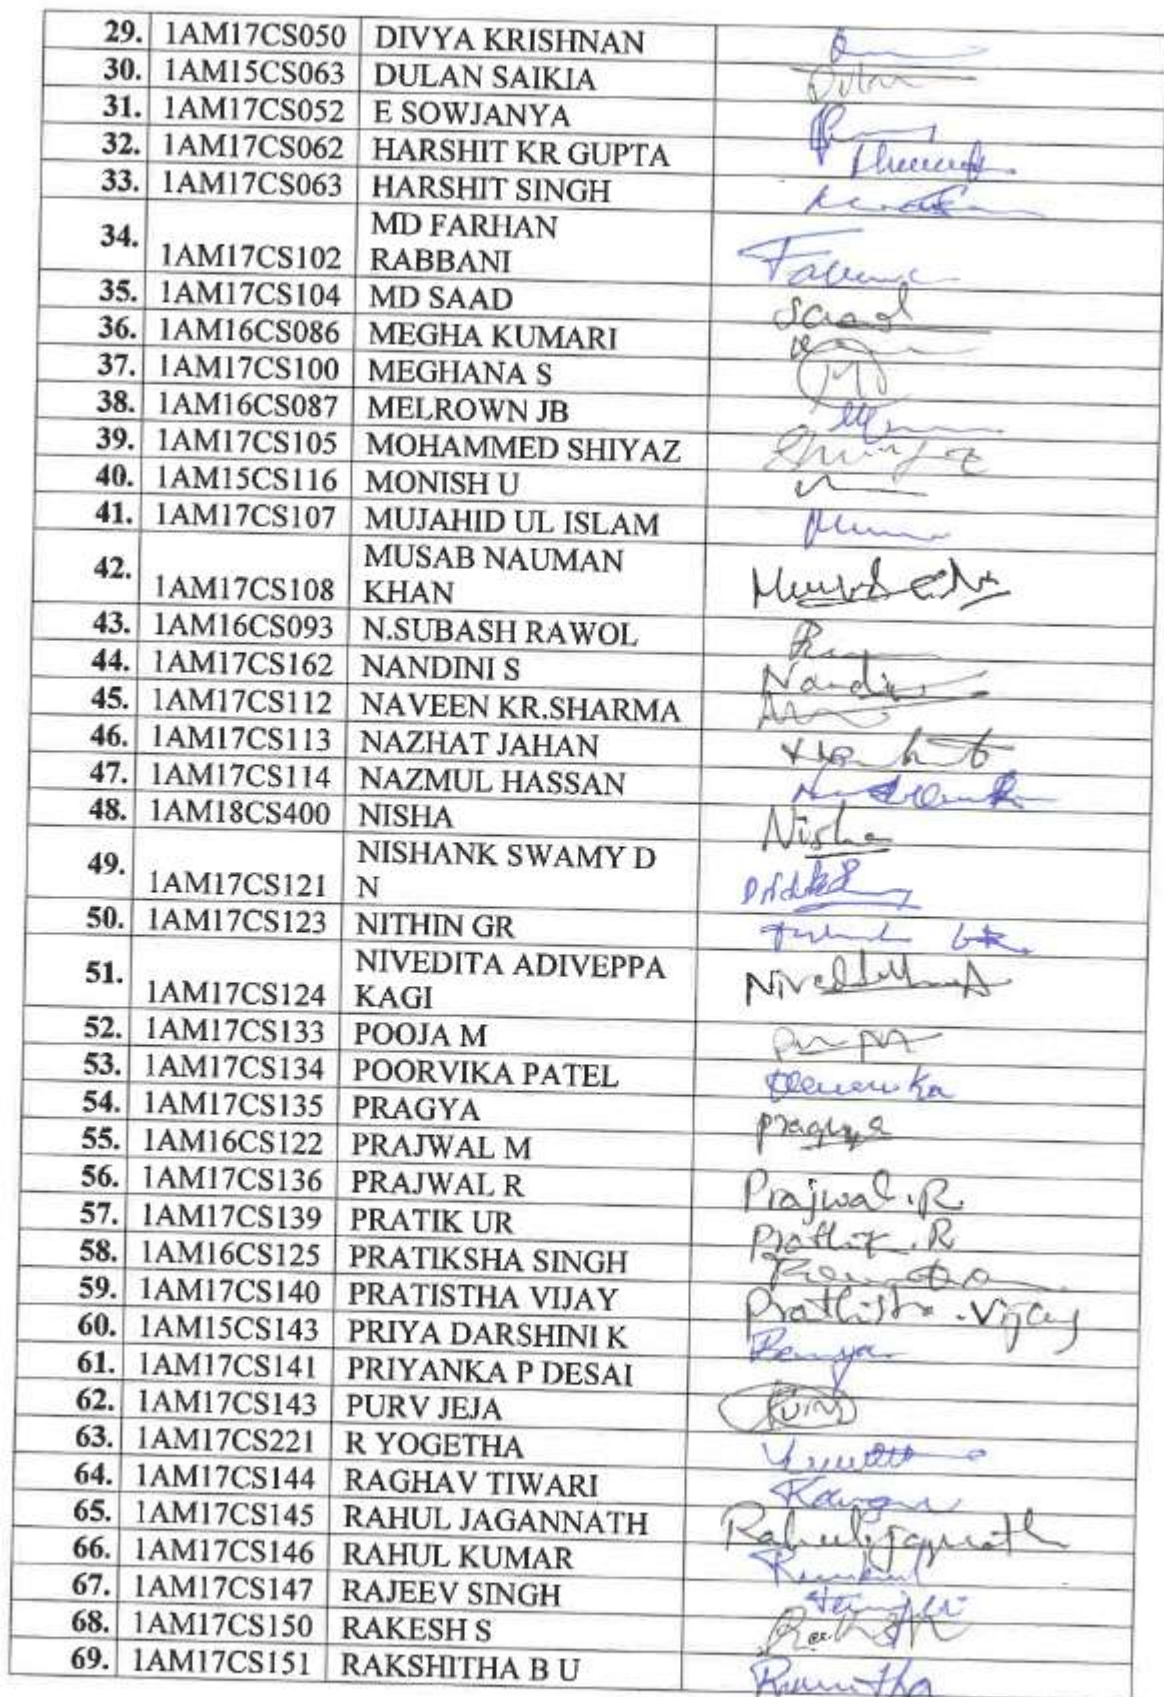 29. 1AM17CS050 DIVYA KRISHNAN
30. 1AM15CS063 DULAN SAIKIA Dulan
31. 1AM17CS052 E SOWJANYA
32. 1AM17CS062 HARSHIT KR GUPTA
33. 1AM17CS063 HARSHIT SINGH
34. 1AM17CS102 MD FARHAN
RABBANI
35. 1AM17CS104 MD SAAD Saad
36. 1AM16CS086 MEGHA KUMARI
37. 1AM17CS100 MEGHANA S
38. 1AM16CS087 MELROWN JB
39. 1AM17CS105 MOHAMMED SHIYAZ
40. 1AM15CS116 MONISH U
41. 1AM17CS107 MUJAHID UL ISLAM
42. 1AM17CS108 MUSAB NAUMAN
KHAN
43. 1AM16CS093 N.SUBASH RAWOL
44. 1AM17CS162 NANDINI S
45. 1AM17CS112 NAVEEN KR.SHARMA
46. 1AM17CS113 NAZHAT JAHAN
47. 1AM17CS114 NAZMUL HASSAN
48. 1AM18CS400 NISHA Nisha
49. 1AM17CS121 NISHANK SWAMY D
N
50. 1AM17CS123 NITHIN GR
51. 1AM17CS124 NIVEDITA ADIVEPPA
KAGI
52. 1AM17CS133 POOJA M
53. 1AM17CS134 POORVIKA PATEL
54. 1AM17CS135 PRAGYA Pragya
55. 1AM16CS122 PRAJWAL M
56. 1AM17CS136 PRAJWAL R Prajwal.R
57. 1AM17CS139 PRATIK UR Prathik.R
58. 1AM16CS125 PRATIKSHA SINGH
59. 1AM17CS140 PRATISTHA VIJAY Prathistha.Vijay
60. 1AM15CS143 PRIYA DARSHINI K
61. 1AM17CS141 PRIYANKA P DESAI
62. 1AM17CS143 PURV JEJA
63. 1AM17CS221 R YOGETHA
64. 1AM17CS144 RAGHAV TIWARI
65. 1AM17CS145 RAHUL JAGANNATH
66. 1AM17CS146 RAHUL KUMAR
67. 1AM17CS147 RAJEEV SINGH
68. 1AM17CS150 RAKESH S
69. 1AM17CS151 RAKSHITHA B U